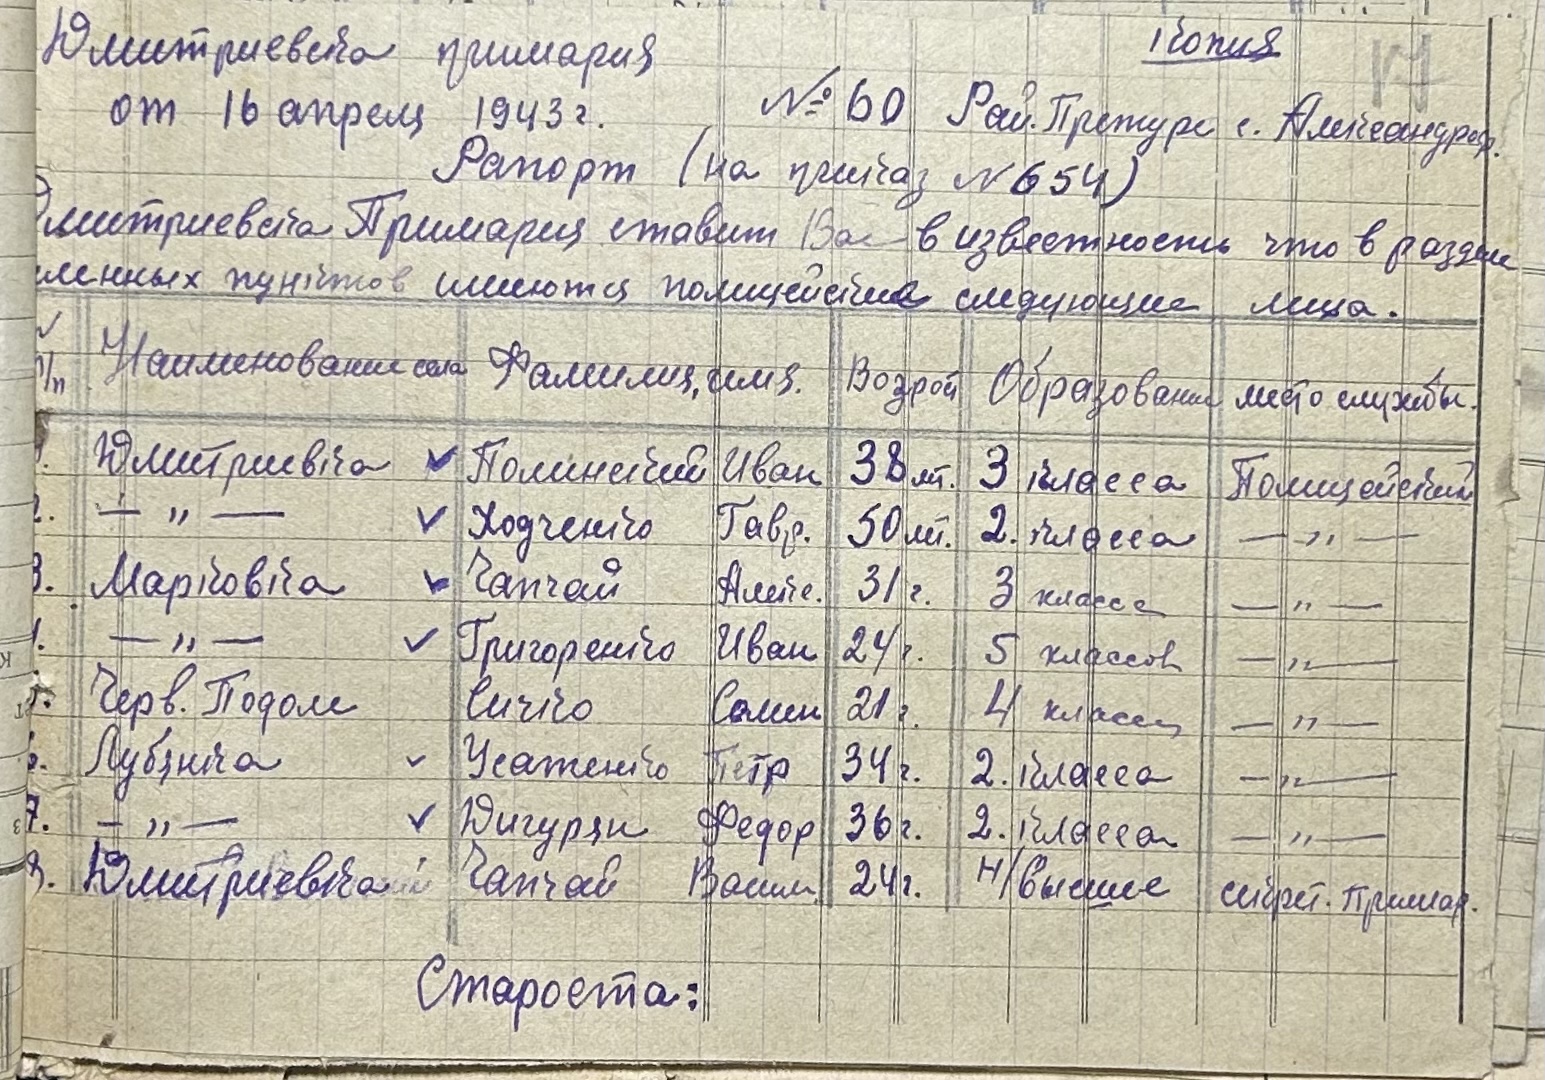 Дмитриевка примария
Копия
от 16 апреля 1943 г. № 60 Рай. Претуре с. Александроф.
Рапорт (на приказ № 654)
Дмитриевка Примария ставит Вас в известность что в разделе
ленных пунктов имеются полицейские следующие лица.
№ п/п Наименование села Фамилия, имя. Возрой Образование место службы.
1. Дмитриевка ✓ Полинский Иван 38 лт. 3 класса Полицейский
2. — " — ✓ Ходченко Гавр. 50 лт. 2. класса — " —
3. Марковка ✓ Чапчай Алекс. 31 г. 3 класса — " —
4. — " — ✓ Григоренко Иван 24 г. 5 классов — " —
5. Черв. Подол Сичко Семен 21 г. 4 класса — " —
6. Лубянка ✓ Усатенко Петр 34 г. 2. класса — " —
7. — " — ✓ Дигурян Федор 36 г. 2. класса — " —
8. Дмитриевка Чапчай Васил. 24 г. н/высшее секрет. Примар.
Староста: